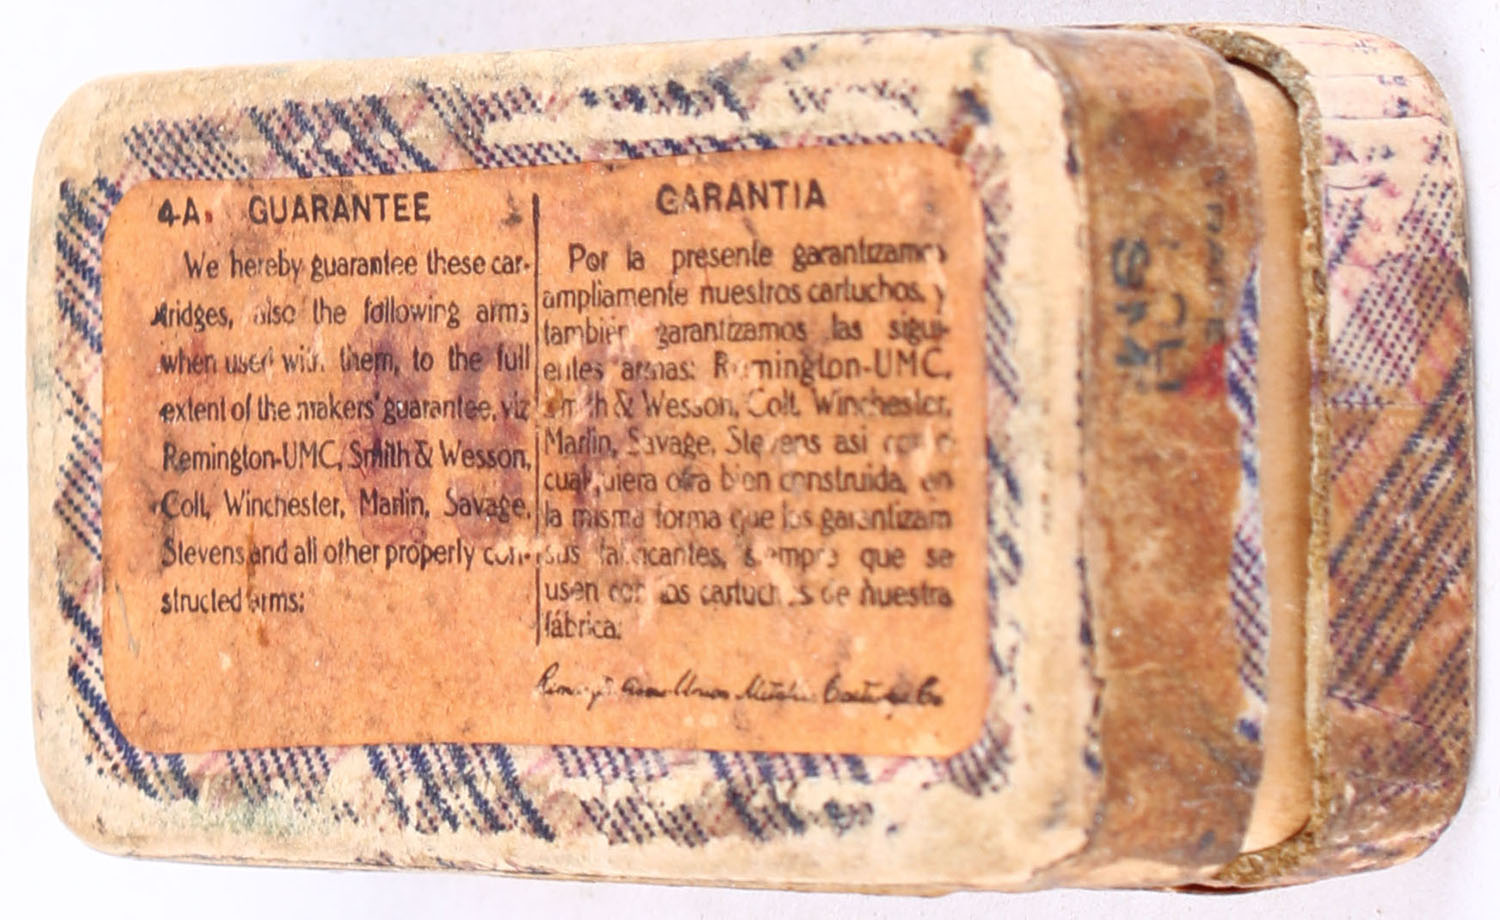 4-A. GUARANTEE
We hereby guarantee these car-
tridges, also the following arms
when used with them, to the full
extent of the makers' guarantee, viz
Remington-UMC, Smith & Wesson,
Colt, Winchester, Marlin, Savage,
Stevens and all other properly con-
structed arms:
GARANTIA
Por la presente garantizamos
ampliamente nuestros cartuchos, y
también garantizamos las sigui-
entes armas: Remington-UMC,
Smith & Wesson, Colt, Winchester,
Marlin, Savage, Stevens asi como
cualquiera otra bien construida, en
la misma forma que los garantizam
sus fabricantes, siempre que se
usen con los cartuchos de nuestra
fábrica:
Remington Arms Union Metallic Cartridge Co